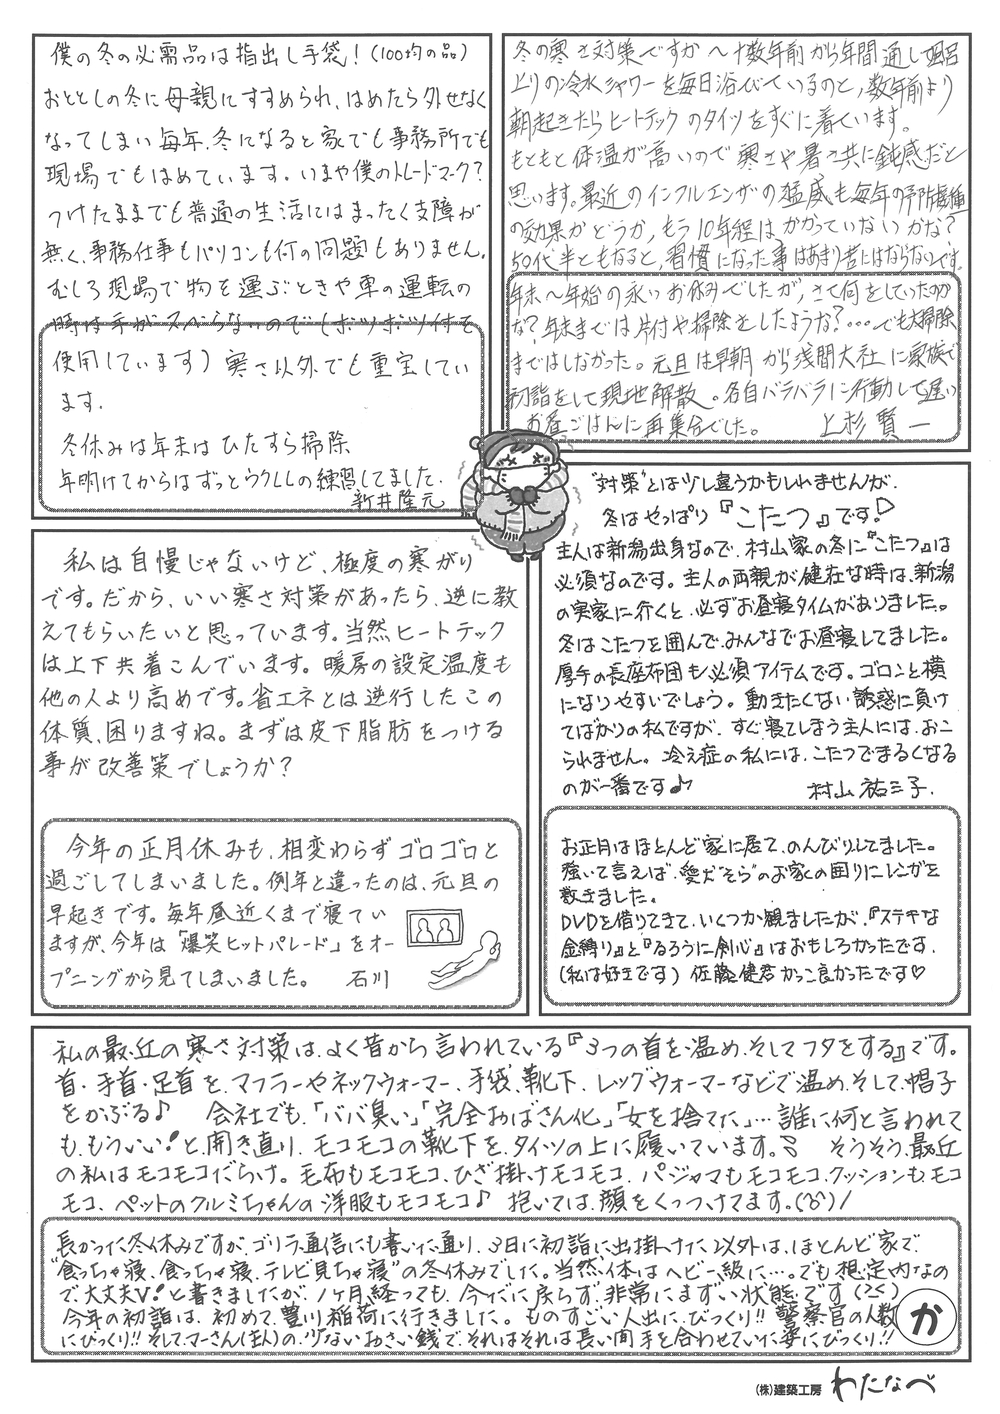 僕の冬の必需品は指出し手袋!(100均の品)
おととしの冬に母親にすすめられ、はめたら外せなく
なってしまい毎年、冬になると家でも事務所でも
現場でもはめています。いまや僕のトレードマーク?
つけたままでも普通の生活にはまったく支障が
無く、事務仕事もパソコンも何の問題もありません。
むしろ現場で物を運ぶときや車の運転の
時は手がスベらないので(ボツボツ付を
使用しています)寒さ以外でも重宝してい
ます.
冬休みは年末は ひたすら掃除
年明けてからはずっとウクレレの練習してました.
新井隆元
冬の寒さ対策ですか～十数年前から年間通し風呂
上りの冷水シャワーを毎日浴びているのと,数年前より
朝起きたらヒートテックのタイツをすぐに着ています。
もともと体温が高いので寒さや暑さ共に鈍感だと
思います。最近のインフルエンザの猛威も毎年の予防接種
の効果かどうか,もう10年程はかかっていないかな?
50代半ともなると,習慣になった事はあまり苦にはならないです.
年末～年始の永いお休みでしたが,さて何をしていたのか
な?年末までは片付や掃除をしたような?…でも大掃除
まではしなかった。元旦は早朝から浅間大社に家族で
初詣をして現地解散。各自バラバラに行動して遅い
お昼ごはんに再集合でした。 上杉賢一
"対策"とは少し違うかもしれませんが、
冬はやっぱり『こたつ』です!♡
主人は新潟出身なので、村山家の冬に『こたつ』は
必須なのです。主人の両親が健在な時は、新潟
の実家に行くと、必ずお昼寝タイムがありました。
冬はこたつを囲んで、みんなでお昼寝してました。
厚手の長座布団も必須アイテムです。ゴロンと横
になりやすいでしょう。動きたくない誘惑に負け
てばかりの私ですが、すぐ寝てしまう主人には、おこ
られません。冷え症の私には、こたつでまるくなる
のが一番です♪ 村山祐三子.
お正月はほとんど家に居て、のんびりしてました。
強いて言えば、愛犬"そら"のお家の囲りにレンガを
敷きました。
DVDを借りてきて、いくつか観ましたが、『ステキな
金縛り』と『るろうに剣心』はおもしろかったです.
(私は好きです)佐藤健君かっこ良かったです♡
私は自慢じゃないけど、極度の寒がり
です。だから、いい寒さ対策があったら、逆に教
えてもらいたいと思っています。当然ヒートテック
は上下共着こんでいます。暖房の設定温度も
他の人より高めです。省エネとは逆行したこの
体質、困りますね。まずは皮下脂肪をつける
事が改善策でしょうか?
今年の正月休みも、相変わらずゴロゴロと
過ごしてしまいました。例年と違ったのは、元旦の
早起きです。毎年昼近くまで寝てい
ますが、今年は「爆笑ヒットパレード」をオー
プニングから見てしまいました。 石川
私の最近の寒さ対策は、よく昔から言われている『3つの首を温め、そしてフタをする』です。
首・手首・足首を、マフラーやネックウォーマー、手袋、靴下、レッグウォーマーなどで温め、そして、帽子
をかぶる♪ 会社でも、「ババ臭い」「完全おばさん化」「女を捨てた」…誰に何と言われて
も、もういい!と、開き直り、モコモコの靴下を、タイツの上に履いています。 そうそう、最近
の私はモコモコだらけ。毛布もモコモコ、ひざ掛けモコモコ、パジャマもモコモコ、クッションもモコ
モコ、ペットのクルミちゃんの洋服もモコモコ♪ 抱いては、顔をくっつけてます。
長かった冬休みですが、ゴリラ通信にも書いた通り、3日に初詣に出掛けた以外は、ほとんど家で、
"食っちゃ寝、食っちゃ寝、テレビ見ちゃ寝"の冬休みでした。当然、体はヘビー級に…。でも想定内なの
で、大丈夫V!と書きましたが、1ヶ月経っても、今だに戻らず、非常にまずい状態です
今年の初詣は、初めて、豊川稲荷に行きました。ものすごい人出に、びっくり!! 警察官の人数
にびっくり!! そして、マーさん(主人)の、少ないおさい銭で、それはそれは長い間手を合わせていた姿にびっくり!!
か
(株)建築工房 わたなべ